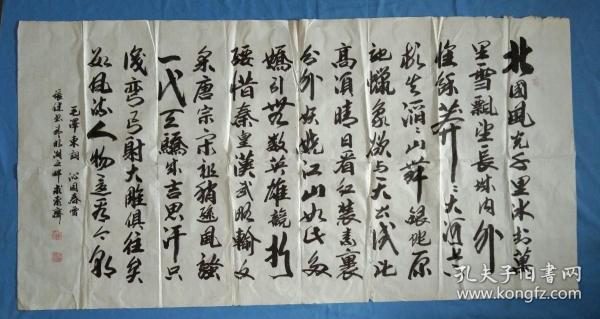 北國風光千里冰封萬
里雪飄望長城内外
惟餘莽〻大河上下
頓失滔〻山舞銀蛇原
馳蠟象欲与天公試比
高須晴日看紅裝素裹
分外妖嬈江山如此多
嬌引無數英雄競折
腰惜秦皇漢武略輸文
采唐宗宋祖稍遜風騷
一代天驕成吉思汗只
識彎弓射大雕俱往矣
數風流人物還看今朝
毛澤東詞 沁園春雪
湖之畔
孔夫子旧书网
www.kongfz.com